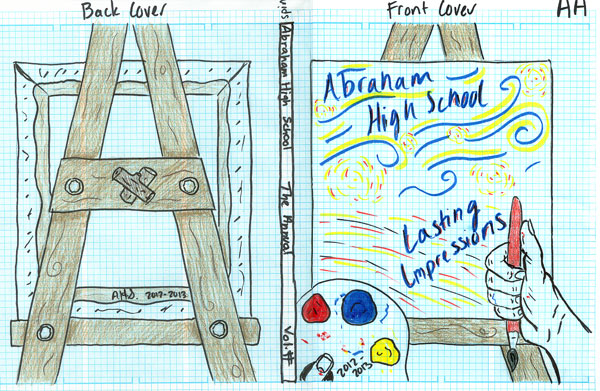 Back Cover
A.H.S. 2012-2013
Abraham High School The Annual Vol.#
Front Cover
AH
Abraham
High School
Lasting
Impressions
2012-
2013